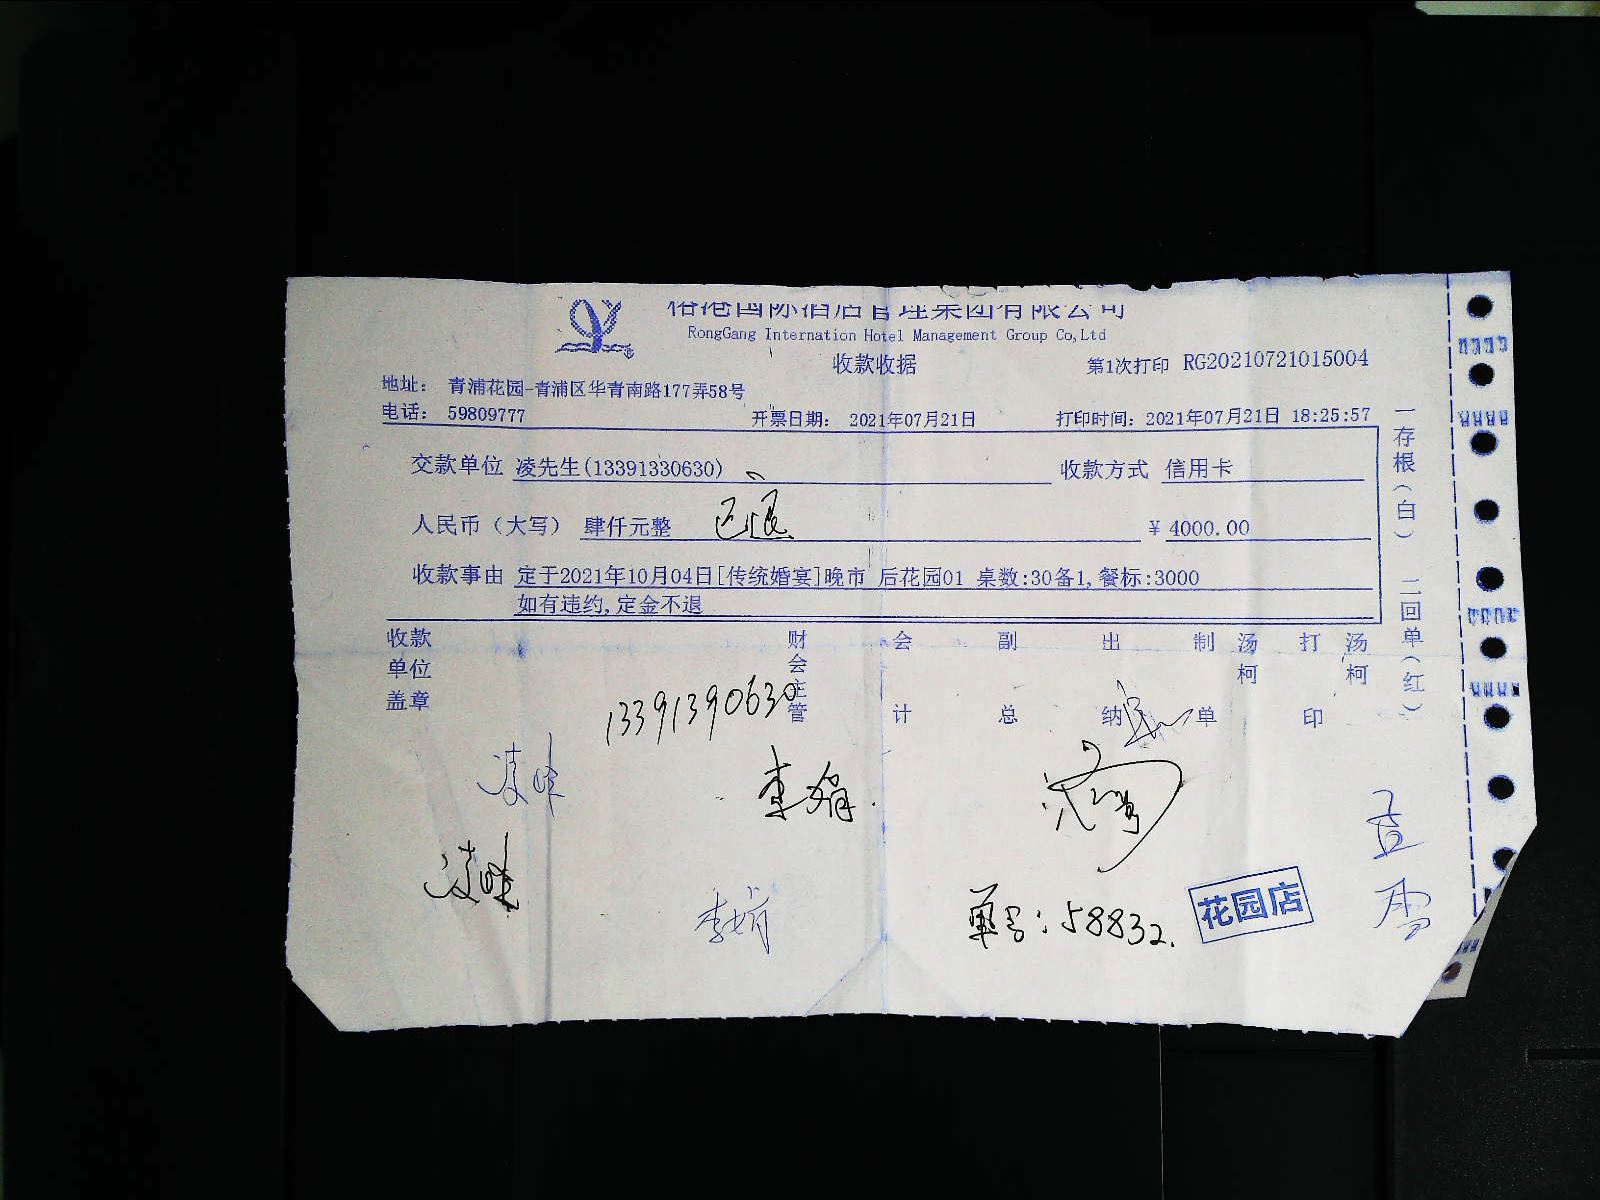 国际酒店管理集团有限公司
RongGang Internation Hotel Management Group Co,Ltd
收款收据
第1次打印 RG20210721015004
地址: 青浦花园-青浦区华青南路177弄58号
电话: 59809777
开票日期: 2021年07月21日
打印时间: 2021年07月21日 18:25:57
交款单位 凌先生(13391330630)
收款方式 信用卡
人民币（大写） 肆仟元整
已退
¥ 4000.00
收款事由 定于2021年10月04日[传统婚宴]晚市 后花园01 桌数:30备1,餐标:3000
如有违约,定金不退
一存根(白) 二回单(红)
收款单位盖章
财会主管
会计
副总
出纳
制单 汤柯
打印 汤柯
13391390630
李娟.
李娟
单号:58832.
花园店